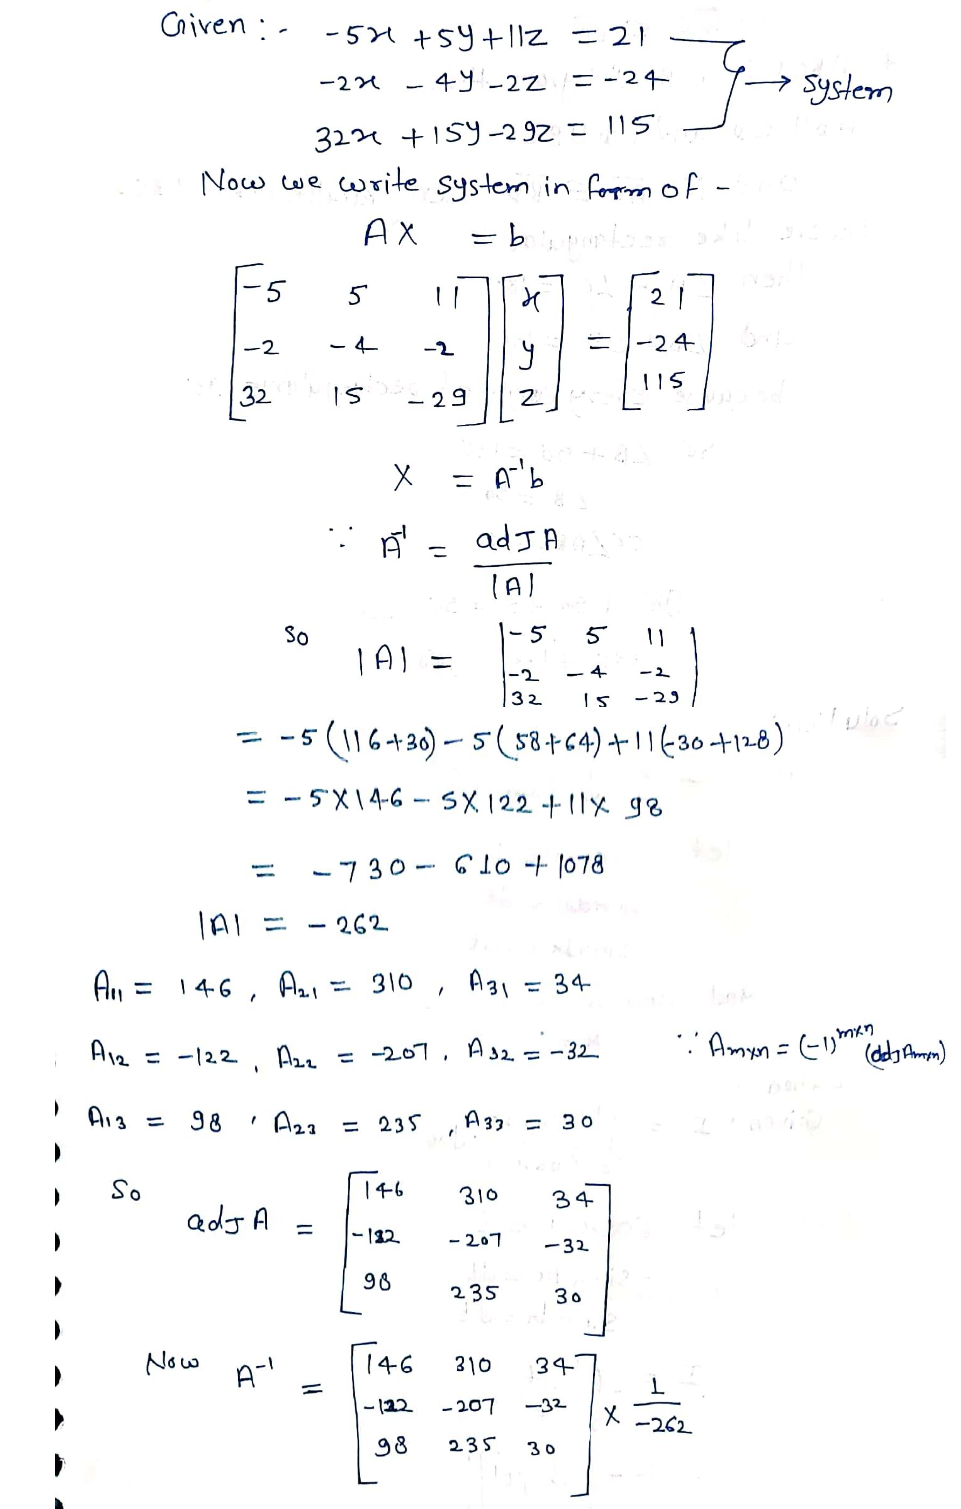 Given :- -5x + 5y + 11z = 21
-2x - 4y - 2z = -24 → system
32x + 15y - 29z = 115
Now we write system in form of -
AX = b
[-5 5 11] [x] [21]
[-2 -4 -2] [y] = [-24]
[32 15 -29] [z] [115]
X = A⁻¹b
∵ A⁻¹ = adJ A
|A|
So |A| = |-5 5 11|
|-2 -4 -2|
|32 15 -29|
= -5(116+30) - 5(58+64) + 11(-30+128)
= -5X146 - 5X122 + 11X 98
= -730 - 610 + 1078
|A| = -262
A₁₁ = 146, A₂₁ = 310, A₃₁ = 34
A₁₂ = -122, A₂₂ = -207, A₃₂ = -32 ∵ Amxn = (-1)^mxn (ddj Amn)
A₁₃ = 98, A₂₃ = 235, A₃₃ = 30
So
adJ A = [146 310 34]
[-122 -207 -32]
[98 235 30]
Now A⁻¹ = [146 310 34]
[-122 -207 -32] X 1/-262
[98 235 30]